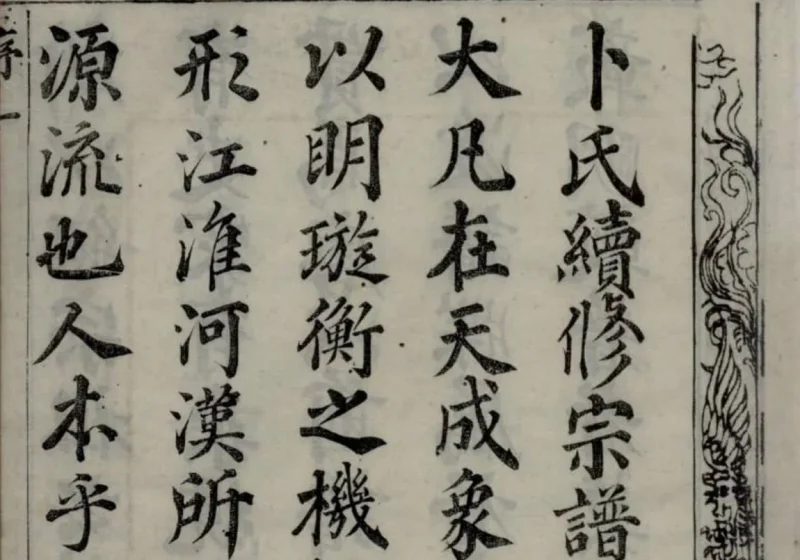 卜氏續修宗譜
大凡在天成象
以明璇衡之機
形江淮河漢所
源流也人本乎
序一